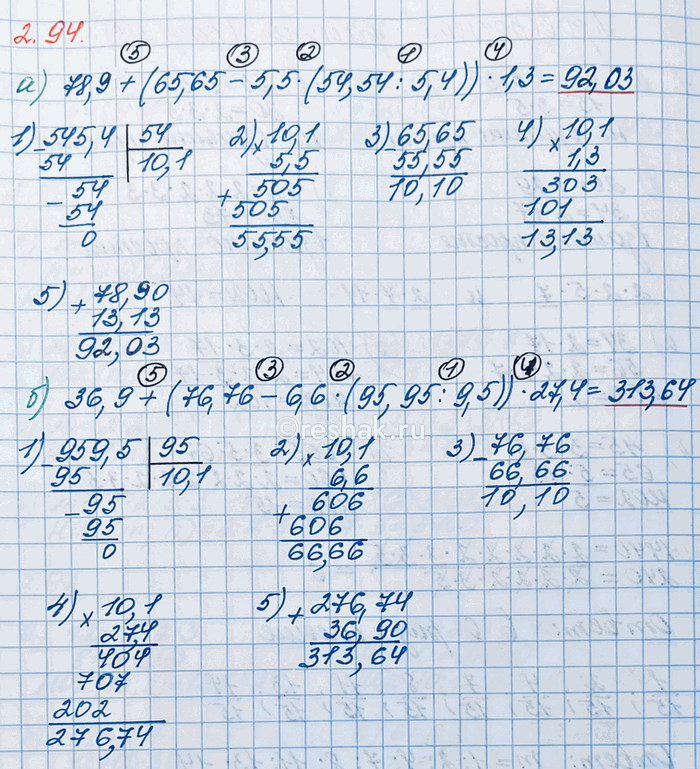 2.94.
5 3 2 1 4
а) 78,9 + (65,65 − 5,5 · (54,54 : 5,4)) · 1,3 = 92,03
1) 545,4 | 54 2) × 10,1 3) 65,65 4) × 10,1
− 54 10,1 5,5 − 55,55 1,3
− 54 + 505 10,10 303
54 505 101
0 55,55 13,13
5) + 78,90
13,13
92,03
5 3 2 1 4
б) 36,9 + (76,76 − 6,6 · (95,95 : 9,5)) · 27,4 = 313,64
©reshak.ru
1) − 959,5 | 95 2) × 10,1 3) − 76,76
95 10,1 6,6 66,66
− 95 + 606 10,10
95 606
0 66,66
4) × 10,1 5) + 276,74
27,4 36,90
404 313,64
707
202
276,74